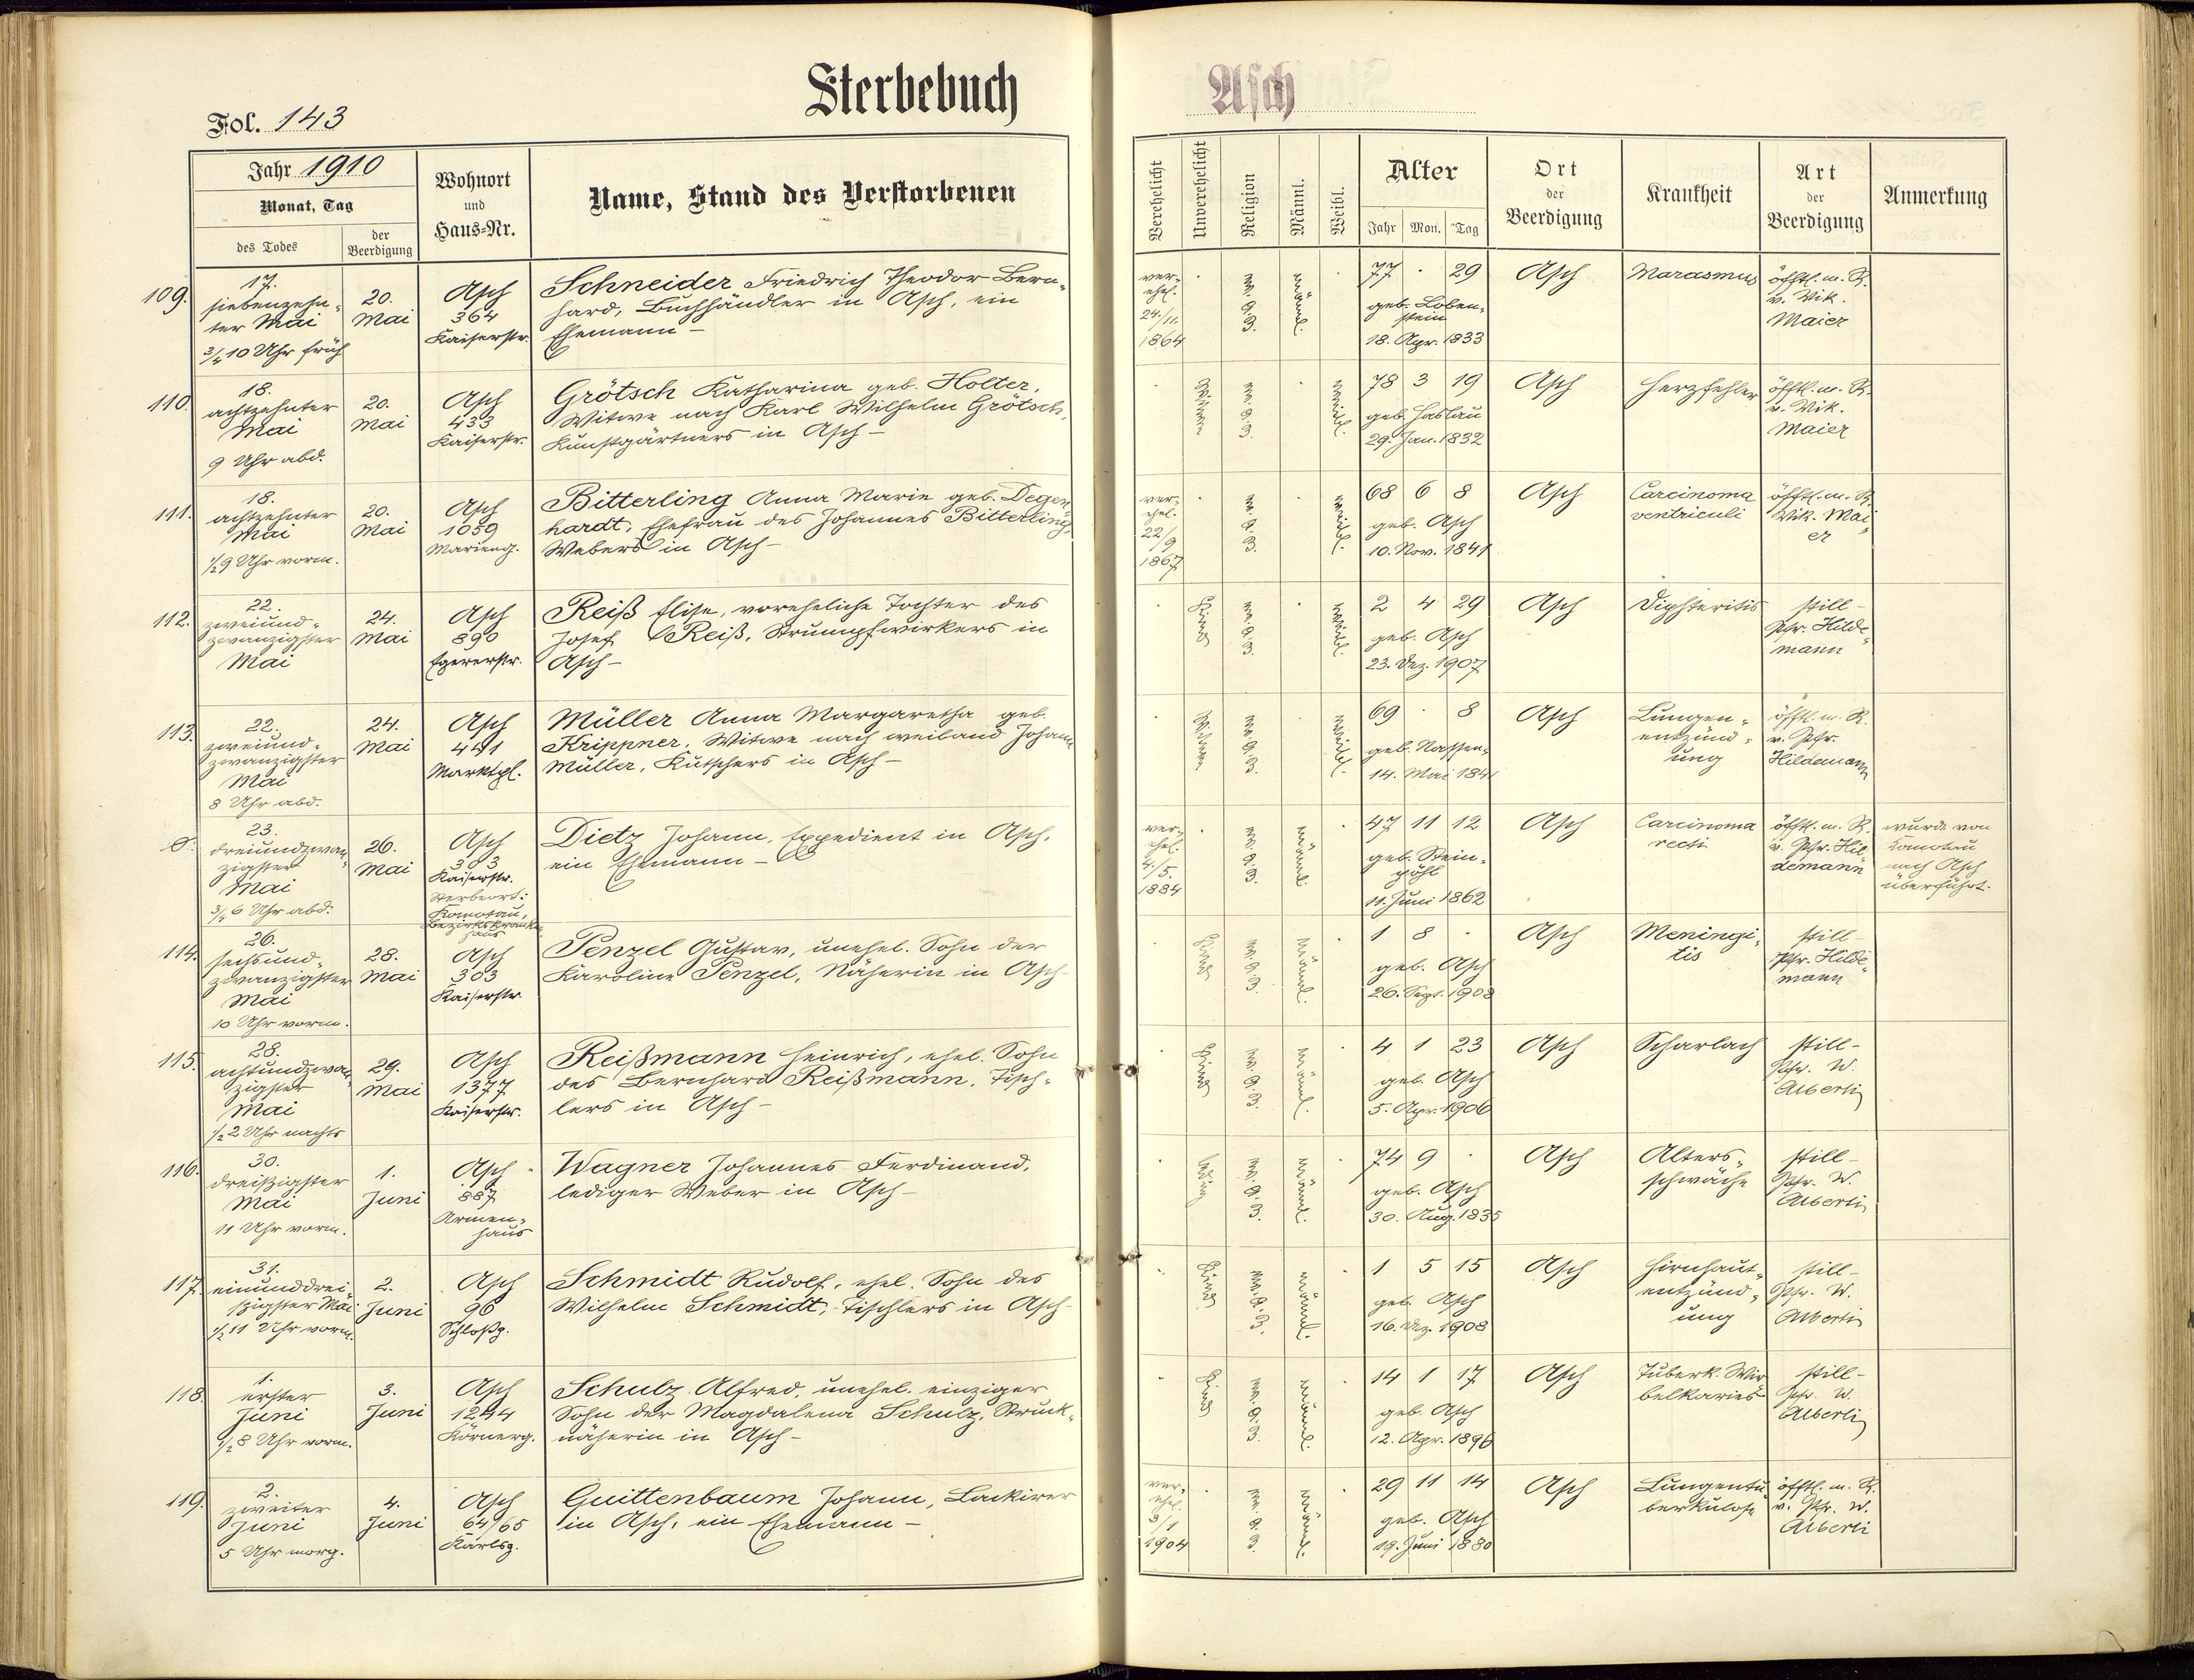 Sterbebuch
Asch
Fol. 143
Jahr 1910
Monat, Tag
des Todes
der Beerdigung
Wohnort
und
Haus-Nr.
Name, Stand des Verstorbenen
Verehelicht
Unverehelicht
Religion
Männl.
Weibl.
Alter
Jahr Mon. Tag
Ort
der
Beerdigung
Krankheit
Art
der
Beerdigung
Anmerkung
109.
17.
siebenzehn-
ter Mai
3/4 10 Uhr früh
20.
Mai
Asch
364
Kaiserstr.
Schneider Friedrich Theodor Bern-
hard, Buchhändler in Asch, ein
Ehemann –
ver-
ehel.
24./11.
1864
männl.
77 · 29
geb. Loben-
stein
18. Apr. 1833
Asch
Marasmus
öfftl. m. R.
v. Vik.
Maier
110.
18.
achtzehnter
Mai
9 Uhr abd.
20.
Mai
Asch
433
Kaiserstr.
Grötsch Katharina geb. Holter,
Witwe nach Karl Wilhelm Grötsch,
Kunstgärtners in Asch –
Witwe
weibl.
78 3 19
geb. Haslau
29. Jan. 1832
Asch
Herzfehler
öfftl. m. R.
v. Vik.
Maier
111.
18.
achtzehnter
Mai
1/2 9 Uhr vorm.
20.
Mai
Asch
1059
Marieng.
Bitterling Anna Marie geb. Degen-
hardt, Ehefrau des Johannes Bitterling,
Webers in Asch –
ver-
ehel.
22/
9
1867
weibl.
68 6 8
geb. Asch
10. Nov. 1841
Asch
Carcinoma
ventriculi
öfftl. m. R.
Vik. Mai-
er
112.
22.
zweiund-
zwanzigster
Mai
24.
Mai
Asch
890
Egererstr.
Reiß Elise, voreheliche Tochter des
Josef Reiß, Strumpfwirkers in
Asch –
Kind
weibl.
2 4 29
geb. Asch
23. Dez. 1907
Asch
Diphteritis
still –
Pfr. Hilde-
mann
113.
22.
zweiund-
zwanzigster
Mai
8 Uhr abd.
24.
Mai
Asch
441
Marktpl.
Müller Anna Margaretha geb.
Krippner, Witwe nach weiland Johann
Müller, Kutschers in Asch –
Witwe
weibl.
69 · 8
geb. Nassen-
14. Mai 1841
Asch
Lungen-
entzünd-
ung
öfftl. m. R.
v. Pfr.
Hildemann
23.
dreiundzwan-
zigster
Mai
3/4 6 Uhr abd.
26.
Mai
Asch
303
Kaiserstr.
Sterbeort:
Komotau,
Bezirkskranken-
haus
Dietz Johann, Expedient in Asch,
ein Ehemann –
ver-
ehel.
4./5.
1884
männl.
47 11 12
geb. Stein-
pöhl
11. Juni 1862
Asch
Carcinoma
recti
öfftl. m. R.
v. Pfr. Hil-
demann
wurde von
Komotau
nach Asch
überführt.
114.
26.
sechsund-
zwanzigster
Mai
10 Uhr vorm.
28.
Mai
Asch
303
Kaiserstr.
Penzel Gustav, unehel. Sohn der
Karoline Penzel, Näherin in Asch –
Kind
männl.
1 8 ·
geb. Asch
26. Sept. 1908
Asch
Meningi-
tis
still –
Pfr. Hilde-
mann
115.
28.
achtundzwan-
zigster
Mai
1/2 2 Uhr nachts
29.
Mai
Asch
1377
Kaiserstr.
Reißmann Heinrich, ehel. Sohn
des Bernhard Reißmann, Tisch-
lers in Asch –
Kind
männl.
4 1 23
geb. Asch
5. Apr. 1906
Asch
Scharlach
still –
Pfr. W.
Alberti
116.
30.
dreißigster
Mai
11 Uhr vorm.
1.
Juni
Asch
887
Armen-
haus
Wagner Johannes Ferdinand,
lediger Weber in Asch –
ledig
männl.
74 9 ·
geb. Asch
30. Aug. 1835
Asch
Alters-
schwäche
still –
Pfr. W.
Alberti
117.
31.
einunddrei-
ßigster Mai
1/2 11 Uhr vorm.
2.
Juni
Asch
96
Schloßg.
Schmidt Rudolf, ehel. Sohn des
Wilhelm Schmidt, Tischlers in Asch –
Kind
männl.
1 5 15
geb. Asch
16. Dez. 1908
Asch
Hirnhaut-
entzünd-
ung
still –
Pfr. W.
Alberti
118.
1.
erster
Juni
1/2 8 Uhr vorm.
3.
Juni
Asch
1244
Körnerg.
Schulz Alfred, unehel. einziger
Sohn der Magdalena Schulz, Struck-
näherin in Asch –
Kind
männl.
14 1 17
geb. Asch
12. Apr. 1896
Asch
Tuberk. Wir-
belkaries
still –
Pfr. W.
Alberti
119.
2.
zweiter
Juni
5 Uhr morg.
4.
Juni
Asch
64/65
Karlsg.
Guittenbaum Johann, Lackirer
in Asch, ein Ehemann –
ver-
ehel.
3/1
1904
männl.
29 11 14
geb. Asch
19. Juni 1880
Asch
Lungentu-
berkulose
öfftl. m. R.
v. Pfr. W.
Alberti